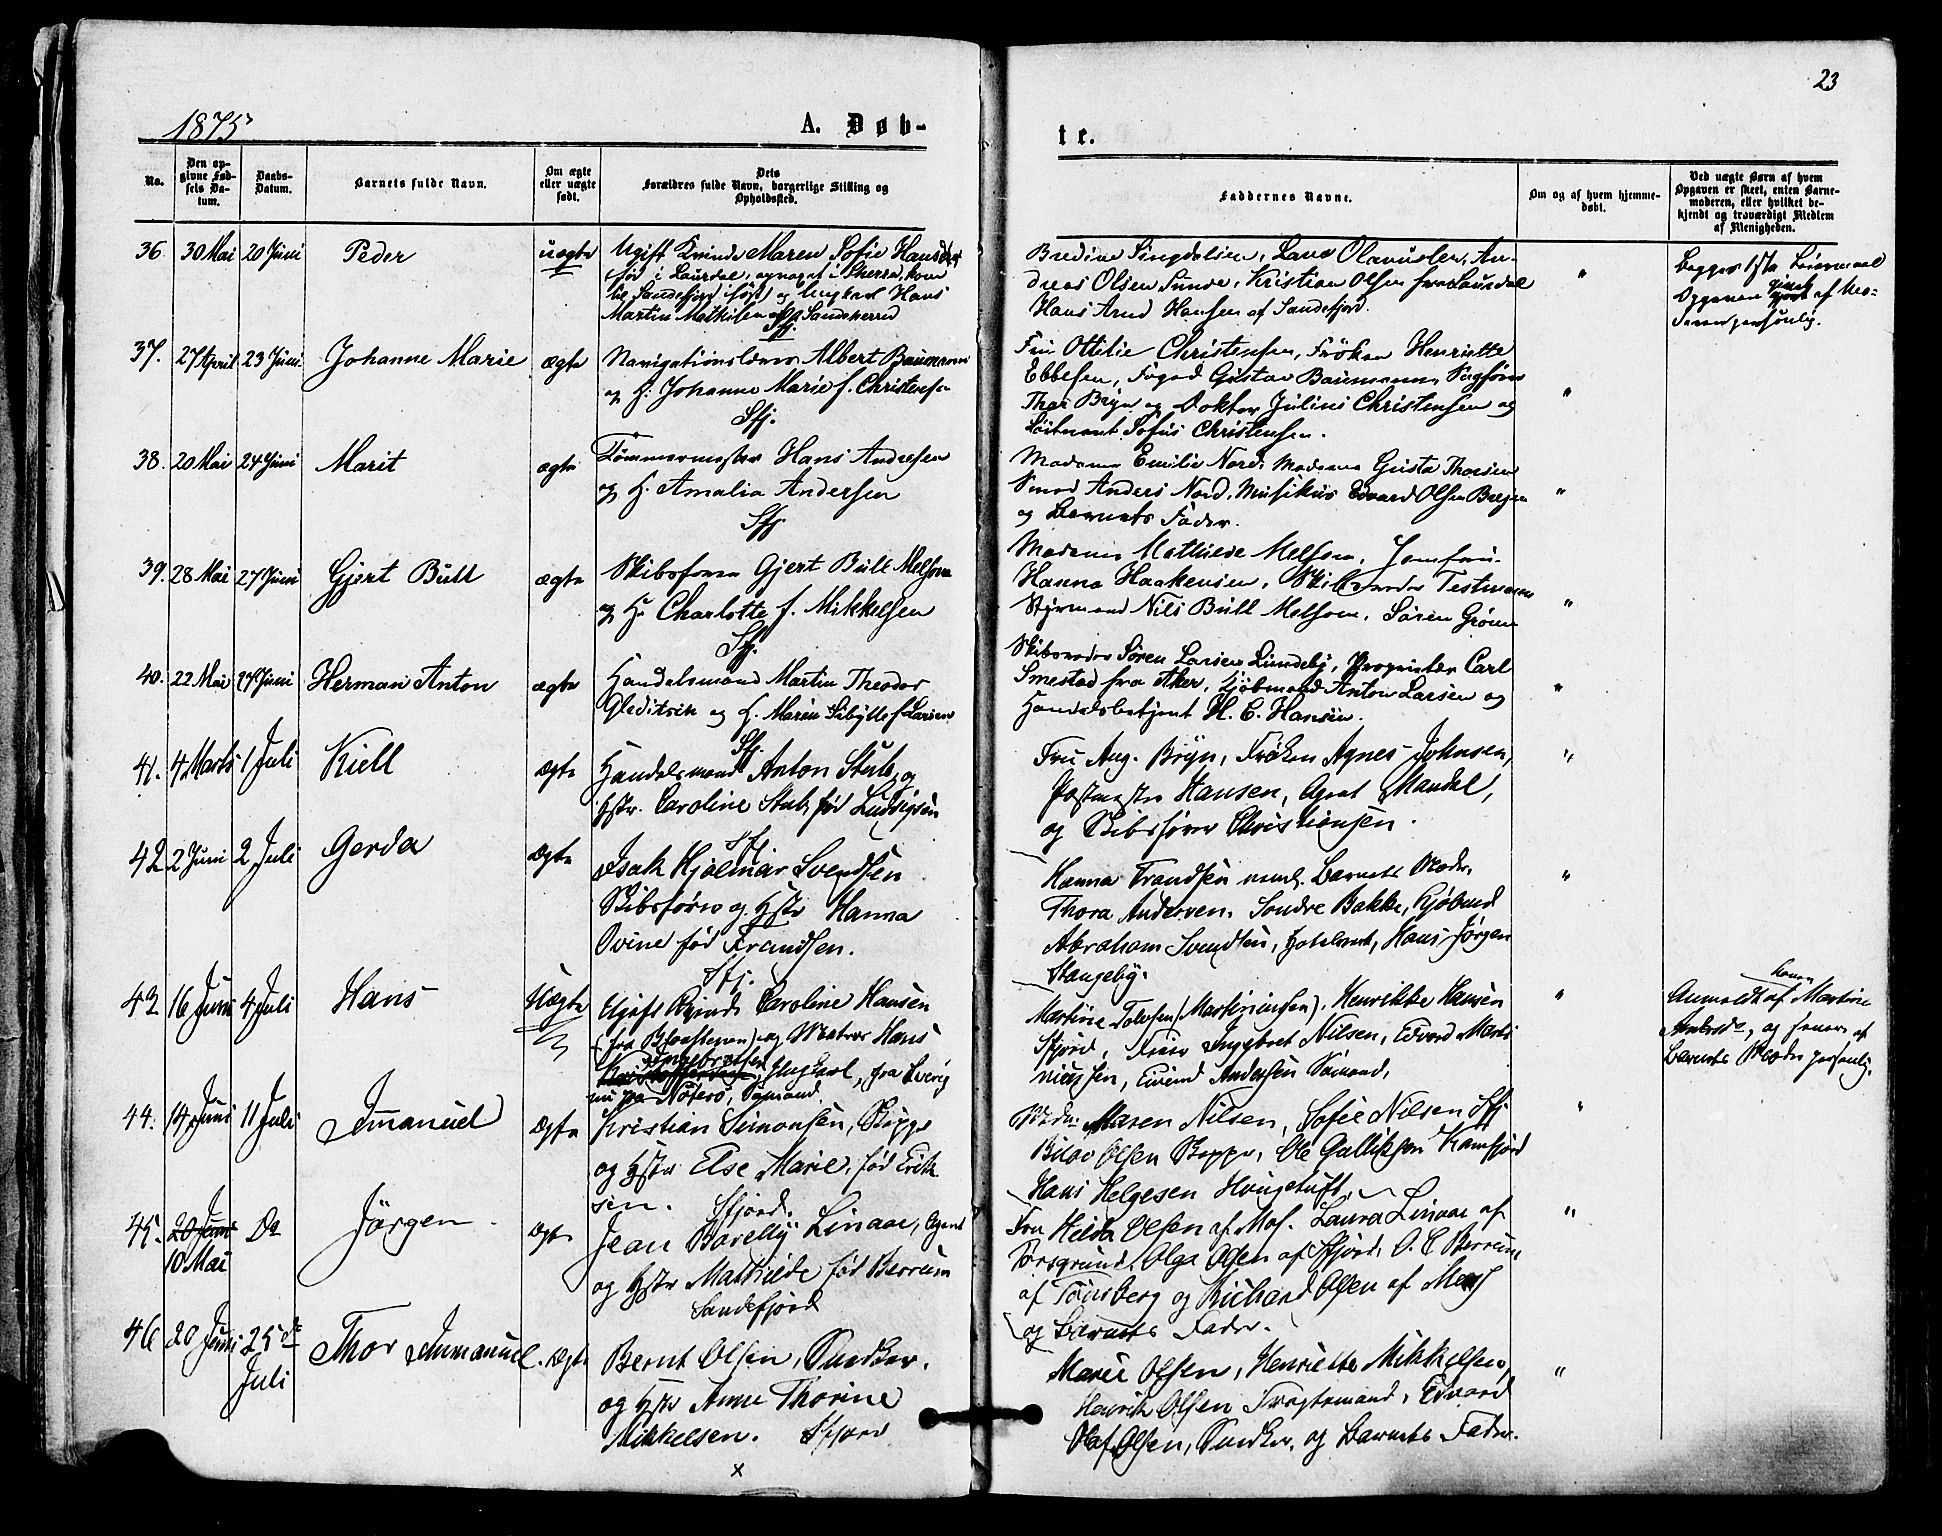 23
1875
A. Døb-
te.
No.
Den op-
givne Fød-
sels Da-
tum.
Daabs-
Datum.
Barnets fulde Navn.
Om ægte
eller uægte
født.
Dets
Forældres fulde Navn, borgerlige Stilling og
Opholdssted.
Faddernes Navne.
Om og af hvem hjemme-
døbt.
Ved uægte Børn af hvem
Opgaven er skeet, enten Barne-
moderen, eller hvilket be-
kjendt og troværdigt Medlem
af Menigheden.
36. 30 Mai 20 Juni Peder uægte
Ugift Kvinde Maren Sofie Hansdtr
født i Laurdal, opnaget i Skerra, kom
til Sandefjord og Ungkarl Hans
Martin Mathisen af Sandeherred
Sfj.
Olavusen, An-
dreas Olsen Sunde, Kristian Olsen fra Laurdal
Hans Arnd Hansen af Sandefjord.
"
Begges 1ste Leiermaal
Opgaven gjort af Mo-
deren personlig.
37. 27 April 23 Juni Johanne Marie ægte
Navigationslærer Albert Baumann
og H. Johanne Marie f. Christensen
Sfj.
Fru Ottilie Christensen, Frøken Henriette
Ebbesen, Foged Gustav Baumann, Sagfører
Thor Bryn og Doktor Julius Christensen og
Løitnant Sofus Christensen.
"
38. 20 Mai 24 Juni Marit ægte
Tømmermester Hans Andersen
og H. Amalia Andersen
Sfj
Madame Emilie Nord, Madame Gusta Thorsen
Smed Anders Nord, Musikus Edvard Olsen
og Barnets Fader.
"
39. 28 Mai 27 Juni Gjert Bull ægte
Skibsfører Gjert Bull Melsom
og H. Charlotte f. Mikkelsen
Sfj.
Madame Mathilde Melsom, Jomfru
Hanna Haakensen, Skibsreder Testmann
Styrmand Nils Bull Melsom, Søren Grøun
"
40. 22 Mai 27 Juni Herman Anton ægte
Handelsmand Martin Theodor
Gleditsch og H. Maren Sibylle f. Larsen
Sfj.
Skibsreder Søren Larsen Lundeby, Proprietær Carl
Smestad fra Aker, Kjøbmand Anton Larsen og
Handelsbetjent H. C. Hansen.
"
41. 4 Marts 1 Juli Kiell Ægte
Handelsmand Anton Stub, og
Hstr. Caroline Stub, født Ludvigsen
Sfj.
Fru Aug. Bryn, Frøken Agnes Johnsen,
Postmester Hansen, Agent Mandel,
og Skibsfører Christiansen.
"
42 2 Juni 2 Juli Gerda Ægte
Isak Hjalmar Svendsen
Skibsfører og Hstr Hanna
Ovine født Frandsen.
Sfj.
Hanna Frandsen Barnets Moder,
Thora Andersen, Sondre Bakke, Kjøbmd
Abraham Svendsen, Hans Jørgen
Stangeby.
"
43 16 Juni 4 Juli Hans Uægte
Ugift Qvinde Caroline Hansen
og Matros Hans
Ingebretsen, Ungkarl, fra Sverig
nu paa Nøterø, Sømand.
Martine Tolvsen (Martiniusen), Henrikke Hansen
Sfjord, Ingebret Nilsen, Edvard Marti
niussen, Eivind Andersen Sømand,
"
Anmeldt af Martine
og senere af
Barnets Moder personlig.
44. 14 Juni 11 Juli Immanuel Ægte
Kristian Simonsen, Skipper
og Hstr Else Marie, født Erik
sen. Sfjord.
Madm: Maren Nilsen, Sofie Nilsen Sfj
Olsen Skipper, Ole Gulliksen Kamfjord
Hans Helgesen Haugetuft.
"
45. 20 Juni
10 Mai Do Jörgen Ægte
Jean Borelly Linaae, Agent
og Hstr Mathilde født Berrum
Sandefjord
Fru Helda Olsen af Mos. Laura Linaae af
Porsgrund, Olga Olsen af Sfjord, O. C. Berrum
af Tønsberg og Richard Olsen af Moss
og Barnets Fader.
"
46 20 Juni 25de
Juli Thor Immanuel. Ægte
Bernt Olsen, Snedker.
og Hstr Anne Thorine
Mikkelsen. Sfjord
Marie Olsen, Henriette Mikkelsen,
Henrik Olsen Fragtemand, Edvard
Olaf Olsen, Snedker, og Barnets Fader.
"
x